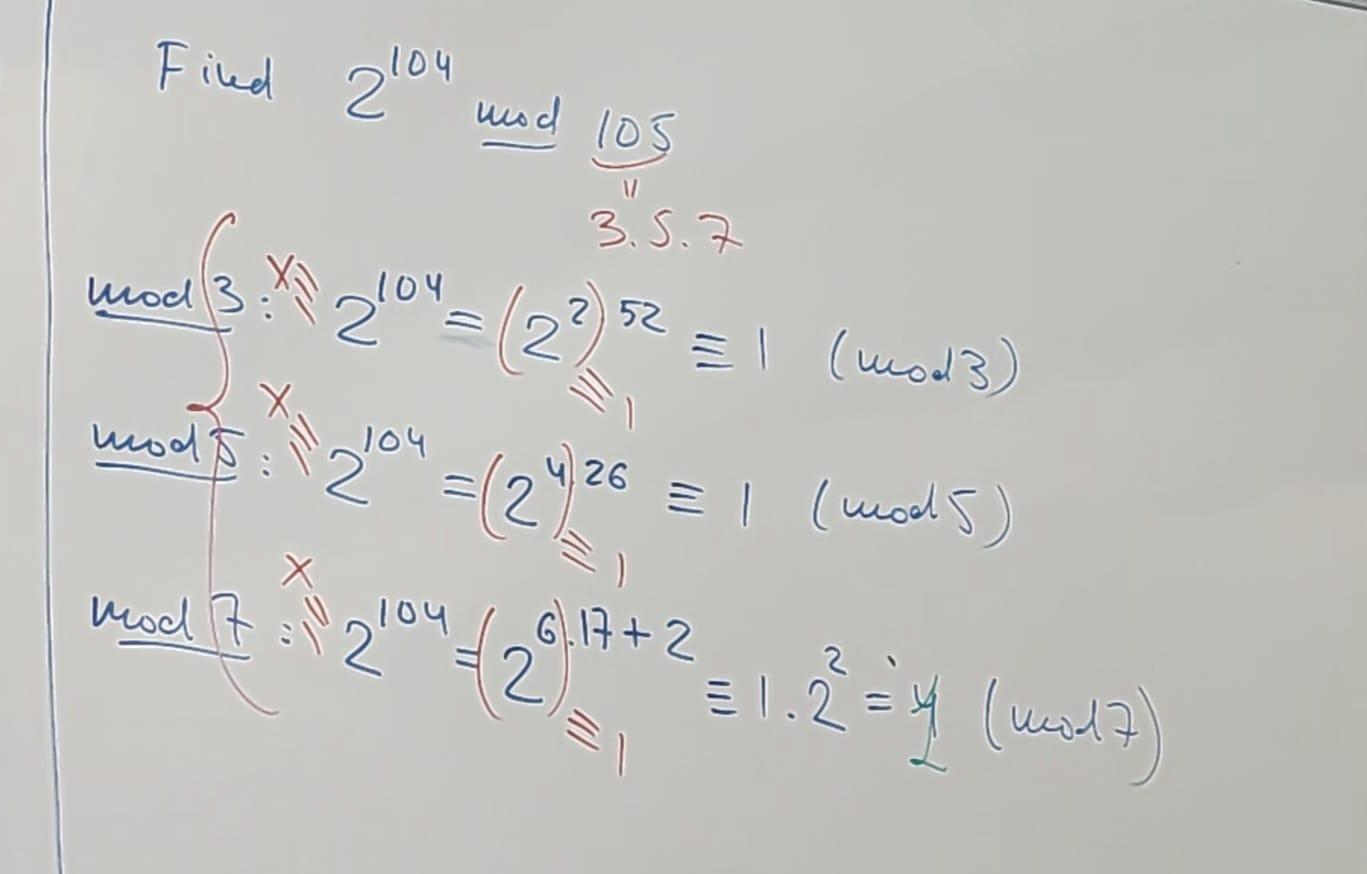 Find 2^104 mod 105
=
3.5.7
mod 3 : x ≡ 2^104 = (2^2)^52 ≡ 1 (mod 3)
≡ 1
mod 5 : x ≡ 2^104 = (2^4)^26 ≡ 1 (mod 5)
≡ 1
mod 7 : x ≡ 2^104 = (2^6)^.17+2 ≡ 1.2^2 = 4 (mod 7)
≡ 1